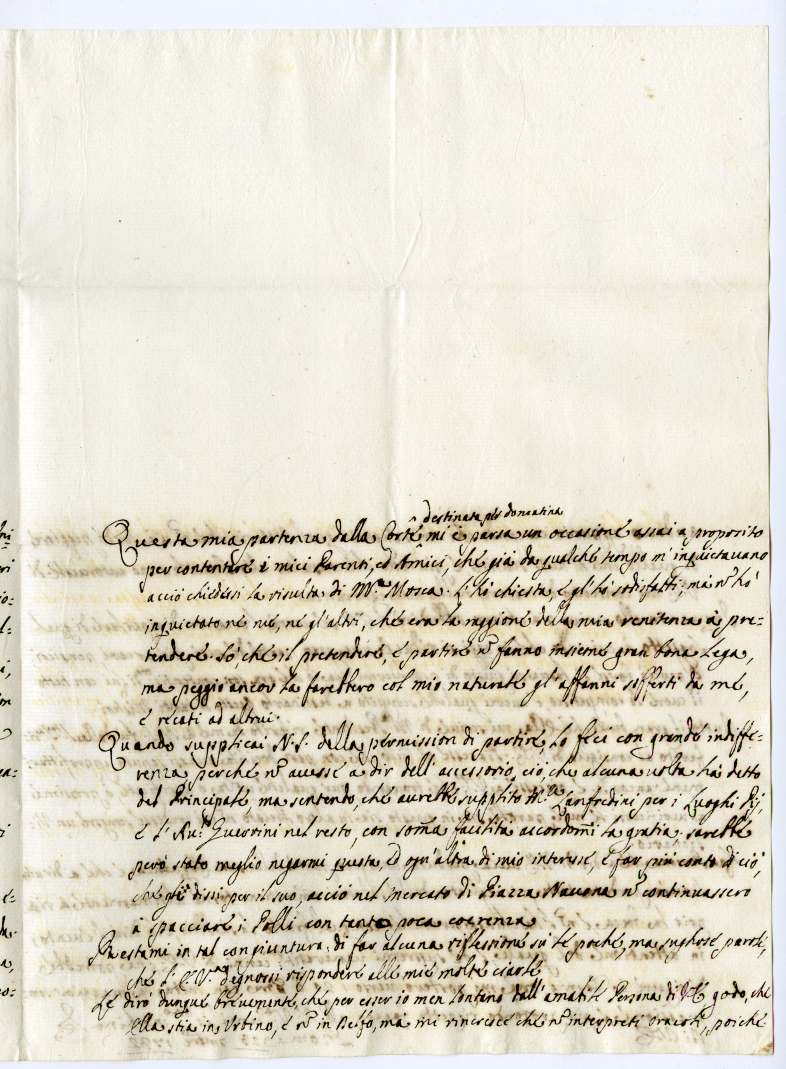 destinata per domatina
Questa mia partenza dalla Corte mi è parsa un occasione assai a proposito
per contentare i miei Parenti, ed Amici, che già da qualche tempo m'inquietavano
acciò chiedessi la risulta di Mr. Mosca. L'hò chiesta, e gl'hò sodisfatti; mà nō hò
inquietato nè me, nè gl'altri, che era la raggione della mia renitenza à pre-
tendere. Sò, che il pretendere, e partire nō fanno insieme gran bona lega,
ma peggio ancor la farebbero col mio naturale gl'affanni sofferti da me,
e recati ad altrui.
Quando supplicai N.S. della permission di partire, lo feci con grande indiffe-
renza, perche nō avesse a dir dell'accessorio, ciò, che alcuna volta hà detto
del Principale, ma sentendo, che avrebbe supplito Lanfredini per i Luoghi Pij,
e l' Guerrini nel resto, con soma facilità accordomi la gratia; sarebbe
però stato meglio negarmi questa, ed ogn'altra di mio interesse, e far più conto di ciò,
che gli dissi per il suo, acciò nel mercato di Piazza Navona nō continuassero
à spacciare i Polli con tanta poca coerenza.
Restami in tal congiuntura di far alcuna riflessione sù le poche, ma sughose parole,
che degnossi rispondere alle mie molte ciarle.
Le dirò dunque brevemente, che per esser io men lontano dall'amabile Persona di godo, che
Ella stia in Urbino, e nō in mà mi rincresce che nō interpreti oracoli, poiche